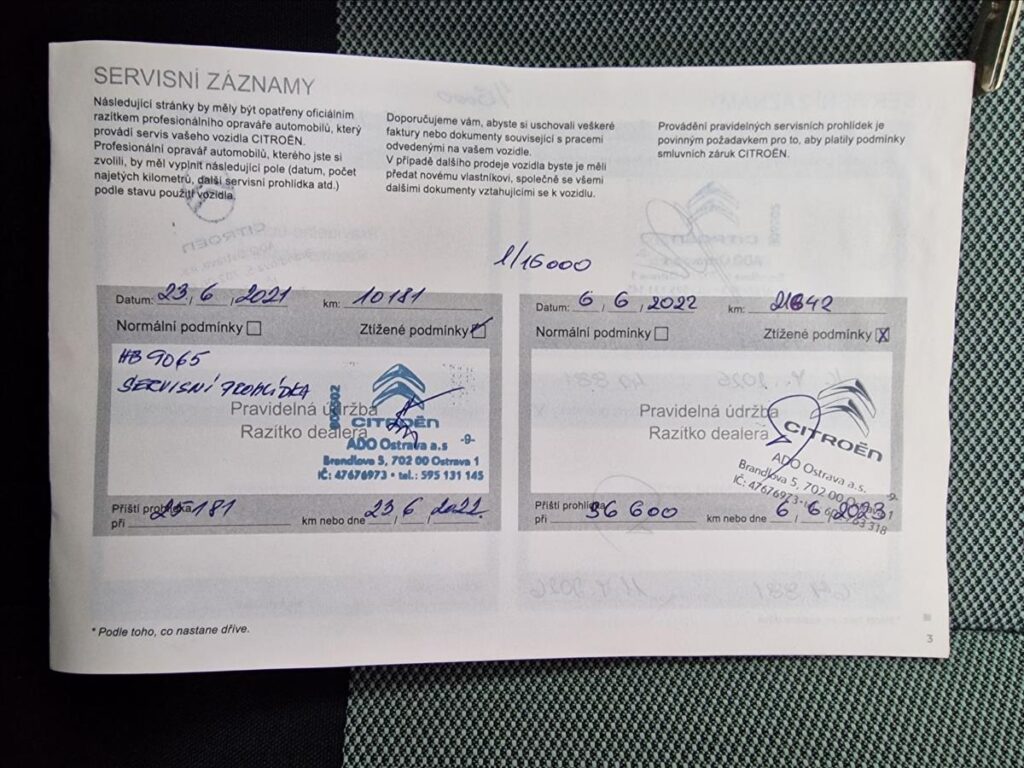 SERVISNÍ ZÁZNAMY
Následující stránky by měly být opatřeny oficiálním
razítkem profesionálního opraváře automobilů, který
provádí servis vašeho vozidla CITROËN.
Profesionální opravář automobilů, kterého jste si
zvolili, by měl vyplnit následující pole (datum, počet
najetých kilometrů, další servisní prohlídka atd.)
podle stavu použití vozidla.
Doporučujeme vám, abyste si uschovali veškeré
faktury nebo dokumenty související s pracemi
odvedenými na vašem vozidle.
V případě dalšího prodeje vozidla byste je měli
předat novému vlastníkovi, společně se všemi
dalšími dokumenty vztahujícími se k vozidlu.
Provádění pravidelných servisních prohlídek je
povinným požadavkem pro to, aby platily podmínky
smluvních záruk CITROËN.
1/15000
Datum: 23, 6, 2021 km: 10181
Normální podmínky Ztížené podmínky
HB 9065
SERVISNÍ PROHLÍDKA
Pravidelná údržba
Razítko dealera
CITROËN
ADO Ostrava a.s -9-
Brandlova 5, 702 00 Ostrava 1
IČ: 47676973 • tel.: 595 131 145
Příští prohlídka
při 25181 km nebo dne 23 / 6 / 2022
Datum: 6, 6, 2022 km:
Normální podmínky Ztížené podmínky X
Pravidelná údržba
Razítko dealera
CITROËN
ADO Ostrava a.s. -9-
Brandlova 5, 702 00 Ostrava 1
IČ: 47676973
Příští prohlídka
při 36 600 km nebo dne 6 / 6 / 2023
* Podle toho, co nastane dříve.
3